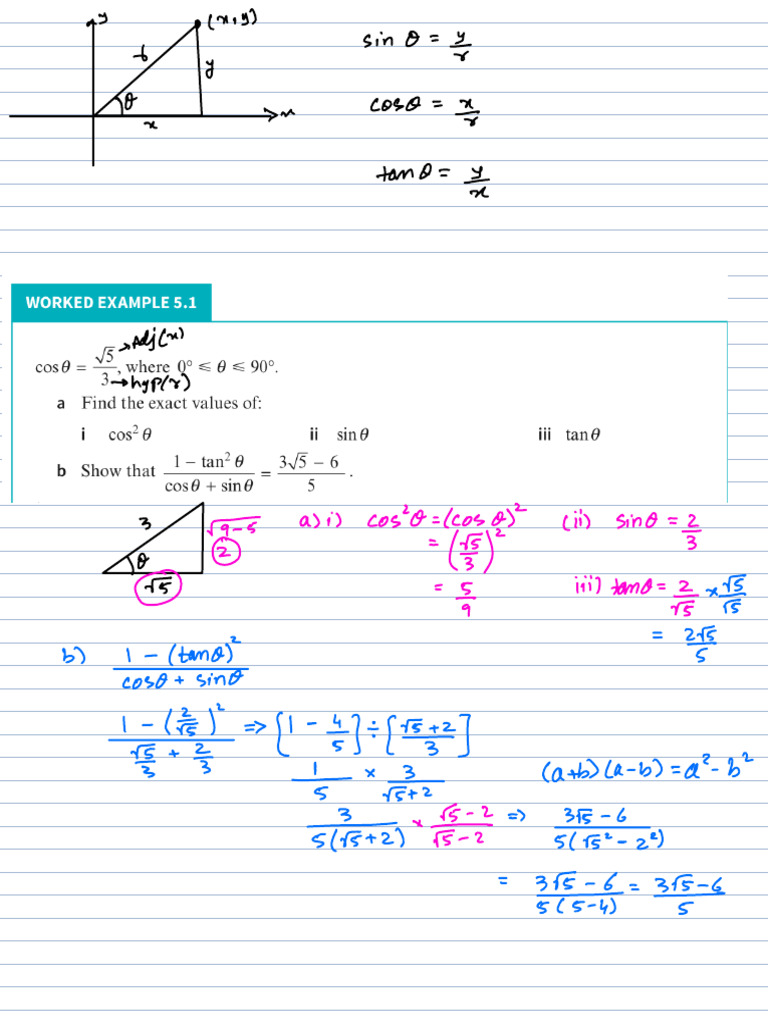 y
(x,y)
r
y
θ
x
x
sin θ = y/r
cosθ = x/r
tanθ = y/x
WORKED EXAMPLE 5.1
cos θ = √5/3, where 0° ⩽ θ ⩽ 90°.
→Adj(x)
→hyp(r)
a Find the exact values of:
i cos² θ
ii sin θ
iii tan θ
b Show that (1 − tan² θ)/(cos θ + sin θ) = (3√5 − 6)/5 .
3
θ
√5
√9-5
2
a) i) cos²θ = (cos θ)²
= (√5/3)²
= 5/9
(ii) sinθ = 2/3
iii) tanθ = 2/√5 × √5/√5
= 2√5/5
b) (1 - (tanθ)²)/(cosθ + sinθ)
(1 - (2/√5)²)/(√5/3 + 2/3) => [1 - 4/5] ÷ [(√5+2)/3]
1/5 × 3/(√5+2)
(a+b)(a-b) = a²-b²
3/(5(√5+2)) × (√5-2)/(√5-2) => (3√5-6)/(5(√5²-2²))
= (3√5-6)/(5(5-4)) = (3√5-6)/5